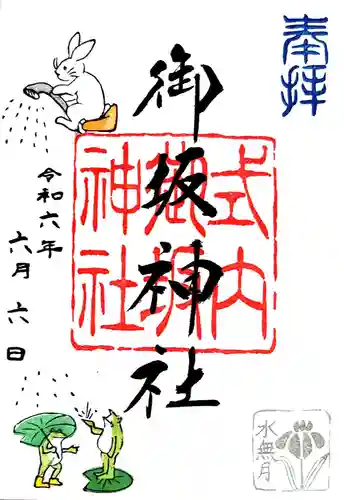 奉拝
御坂神社
式内
御坂
神社
令和六年
六月六日
水無月